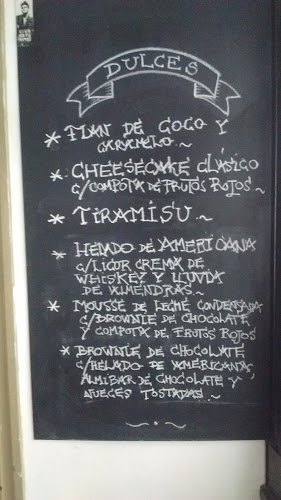 DULCES
* FLAN DE COCO Y
CARAMELO.~
* CHEESECAKE CLÁSICO
C/COMPOTA DE FRUTOS ROJOS~
* TIRAMISU.~
* HELADO DE AMERICANA
C/LICOR CREMA DE
WHISKEY Y LLUVIA
DE ALMENDRAS.~
* MOUSSE DE LECHE CONDENSADA
C/BROWNIE DE CHOCOLATE
Y COMPOTA DE FRUTOS ROJOS
* BROWNIE DE CHOCOLATE
C/HELADO DE AMERICANA,
ALMIBAR DE CHOCOLATE Y
NUECES TOSTADAS.~